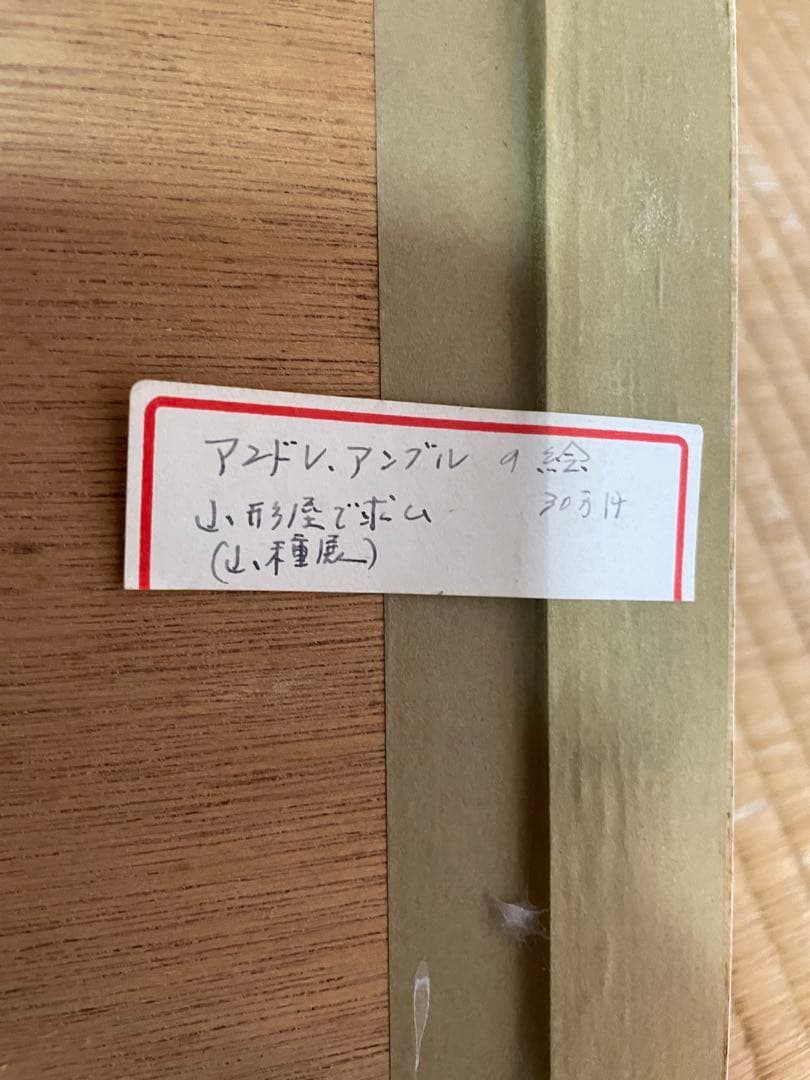 アンドレ、アンブル の 絵
山形屋で求ム 30万円
(山種展)